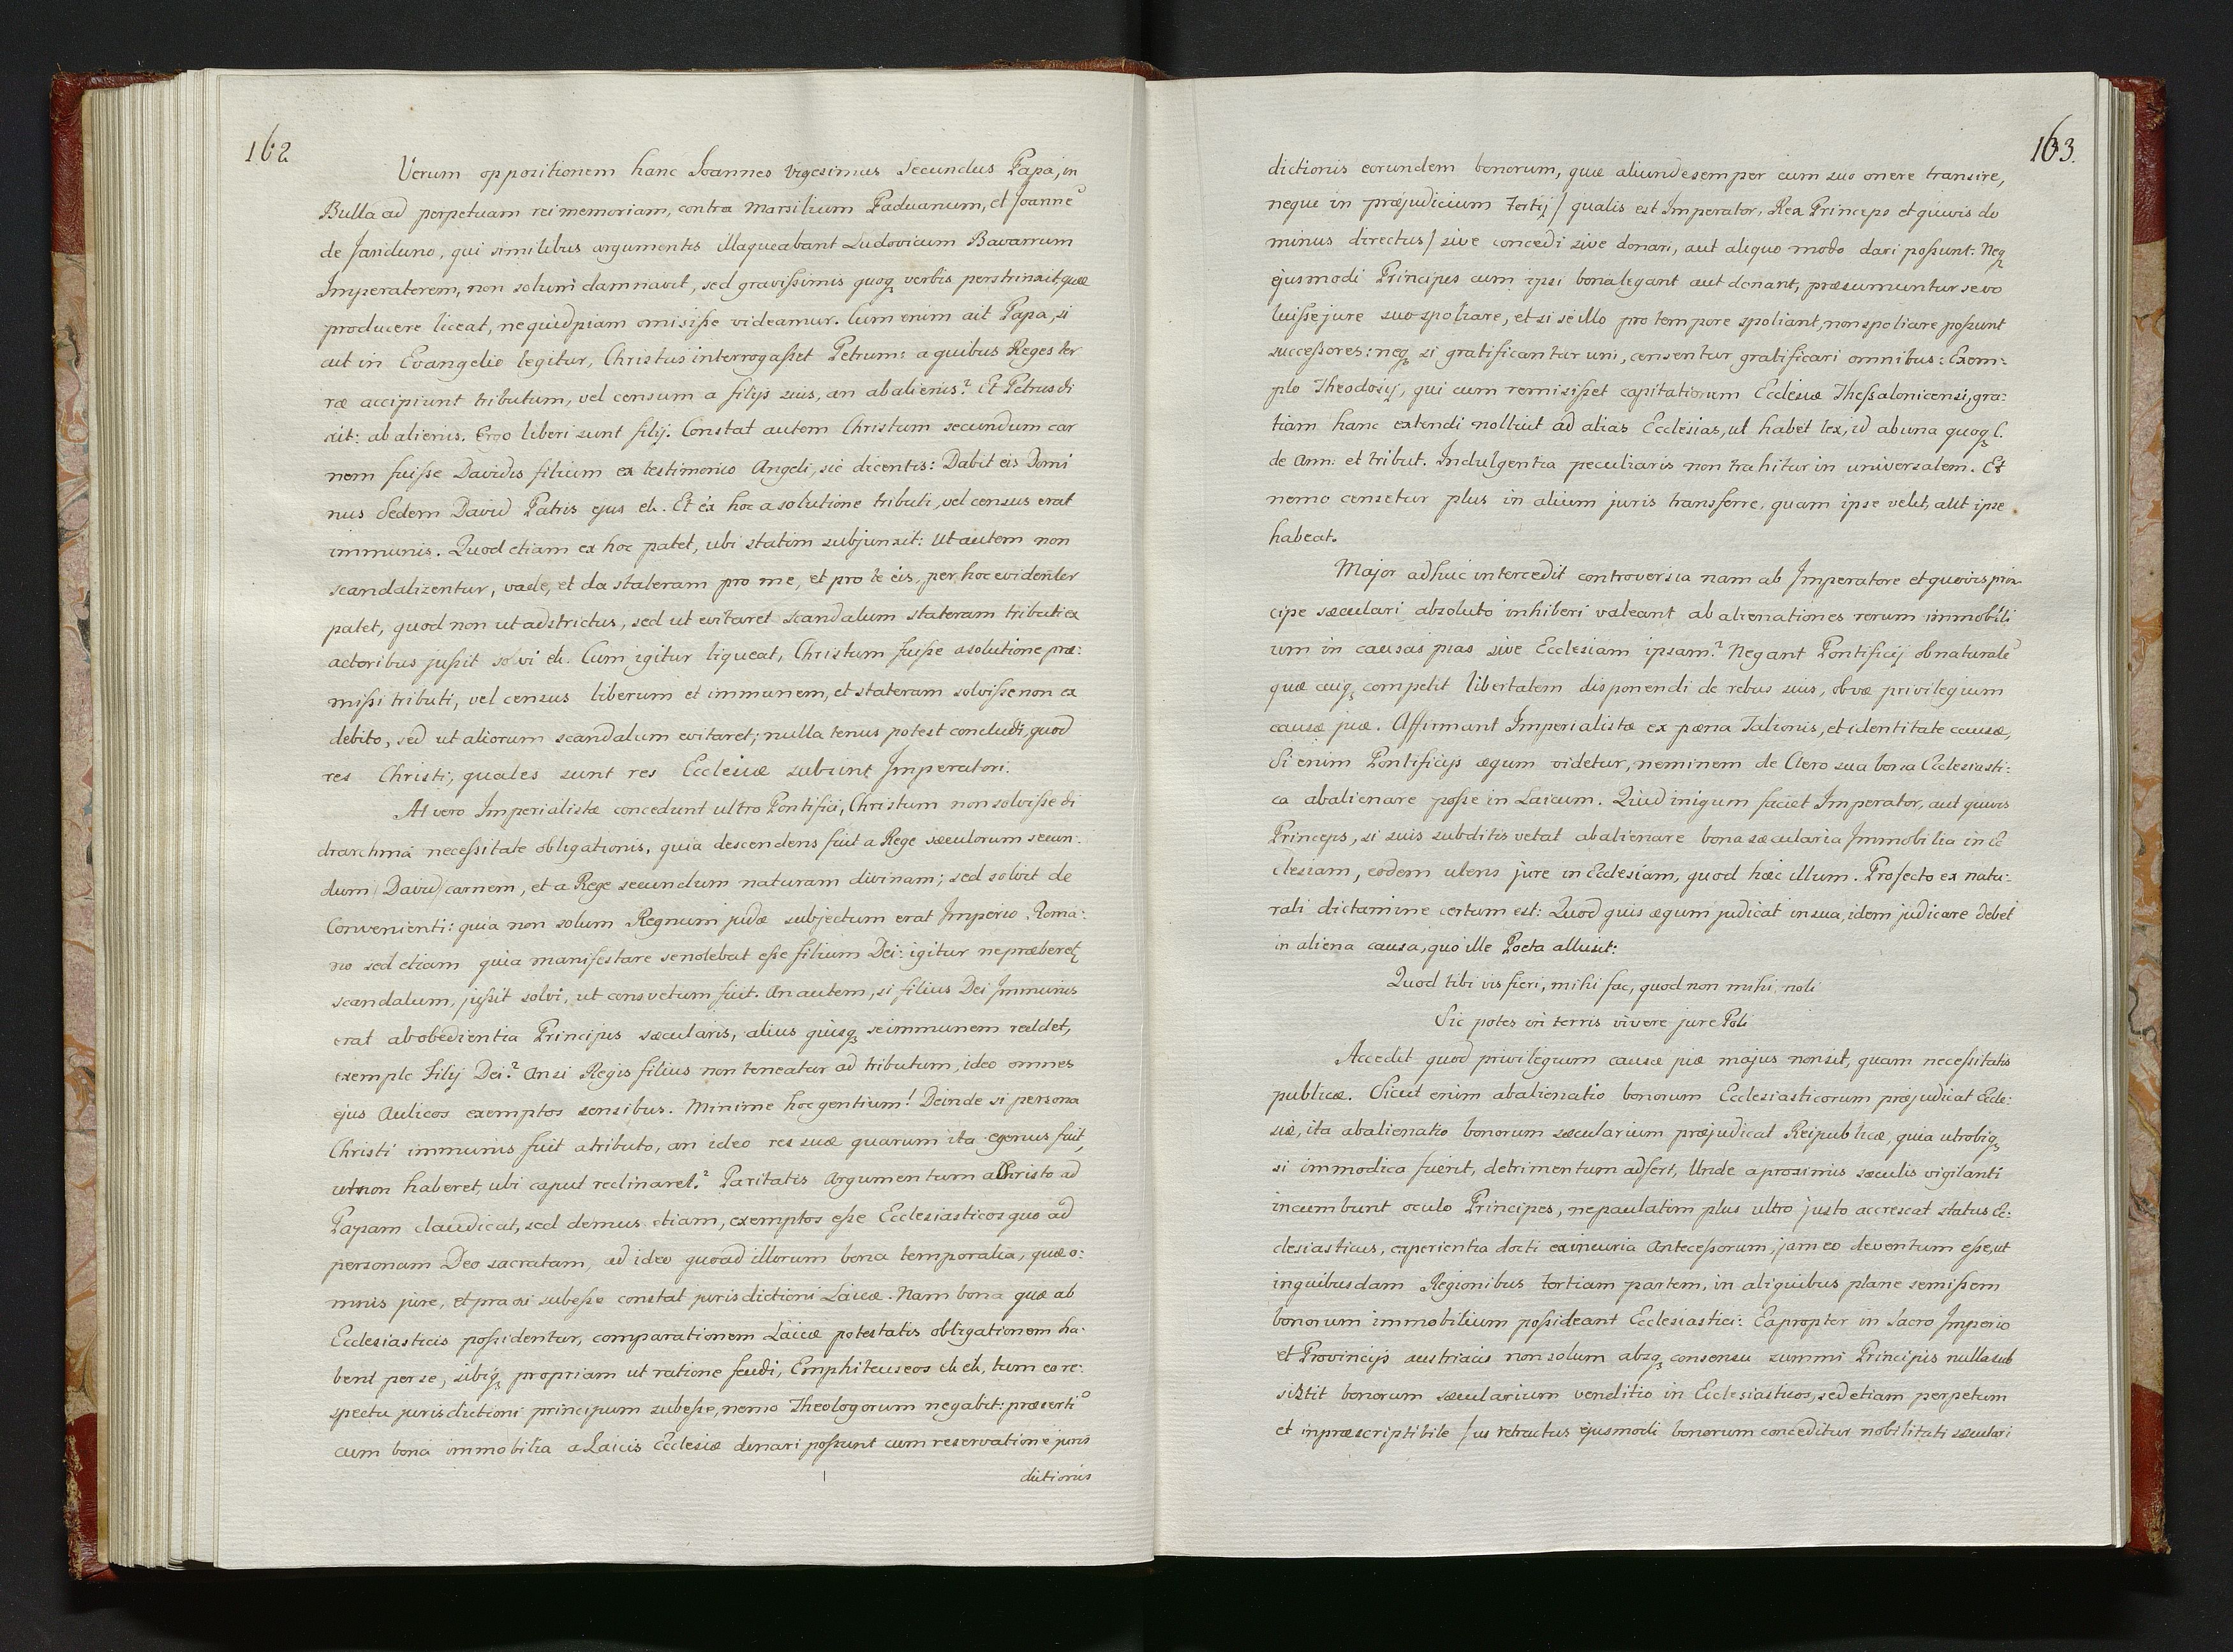 162
Verum oppositionem hanc Joannes Vigesimus Secundus Papa, in
Bulla ad perpetuam rei memoriam, contra Marsilium Paduanum, et Joanne͂
de Janduno, qui similibus argumentis illaqueabant Ludovicum Bavarrum
Imperatorem, non solum damnavit, sed gravissimis quoq₃ verbis perstrinxit, quæ
producere liceat, ne quidpiam omisisse videamur. Cum enim ait Papa, si
aut in Evangelio legitur, Christus interrogasset Petrum: a quibus Reges ter
ræ accipiunt tributum, vel censum a filijs suis, an ab alienis? Et Petrus di
xit: ab alienis. Ergo liberi sunt filij. Constat autem Christum secundum car
nem fuisse Davidis filium ex testimonio Angeli, sic dicentis: Dabit eis Domi
nus Sedem David Patris ejus et. Et ex hoc a solutione tributi, vel census erat
immunis. Quod etiam ex hoc patet, ubi statim subjunxit: Ut autem non
scandalizentur, vade, et da stateram pro me, et pro te eis, per hoc evidenter
patet, quod non ut adstrictus, sed ut evitaret scandalum stateram tributi ex
actoribus jussit solvi et. Cum igitur liqueat, Christum fuisse a solutione præ:
missi tributi, vel census liberum et immunem, et stateram solvisse non ex
debito, sed ut aliorum scandalum evitaret; nulla tenus potest concludi, quod
res Christi, quales sunt res Ecclesiæ subsint Imperatori.
At vero Imperialistæ concedunt ultro Pontifici, Christum non solvisse di
drarchma necessitate obligationis, quia descendens fuit a Rege sæculorum secun:
dum David carnem, et a Rege secundum naturam divinam; sed solvit de
Convenienti: quia non solum Regnum judæ subjectum erat Imperio Roma:
no sed etiam quia manifestare se nolebat esse filium Dei: igitur ne præberet
scandalum, jussit solvi, ut consvetum fuit. An autem, si filius Dei Immunis
erat ab obedientia Principis sæcularis, alius quisq₃ se immunem reddet,
exemplo Filij Dei? An si Regis filius non teneatur ad tributum, ideo omnes
ejus Aulicos exemptos sensibus. Minime hoc gentium! Deinde si persona
Christi immunis fuit a tributo, an ideo res suæ quarum ita egenus fuit,
ut non haberet, ubi caput reclinaret? Paritatis Argumentum a Christo ad
Papam claudicat, sed demus etiam, exemptos esse Ecclesiasticos quo ad
personam Deo sacratam, ad ideo quoad illorum bona temporalia, quæ o:
mnis jure, et praxi subesse constat jurisdictioni Laicæ. Nam bona quæ ab
Ecclesiasticis possidentur, comparationem Laicæ potestatis obligationem ha:
bent per se, sibiq₃ propriam ut ratione feudi, Emphiteuseos et et, tum eo re:
spectu jurisdictioni principum subesse, nemo Theologorum negabit: præserti͂
cum bona immobilia a Laicis Ecclesiæ donari possunt cum reservatione juris
dictionis
163.
dictionis eorundem bonorum, quæ aliunde semper cum suo onere transire,
neque in præjudicium Tertij / qualis est Imperator, Rex Princeps et quivis do
minus directus / sive concedi sive donari, aut aliquo modo dari possunt: Neq₃
ejusmodi Principes cum ipsi bona legant aut donant, præsumuntur se vo
luisse jure suo spoliare, et si se illo pro tempore spoliant, non spoliare possunt
successores: neq₃ si gratificantur uni, censentur gratificari omnibus: Exem:
plo Theodosij, qui cum remisisset capitationem Ecclesiæ Thessalonicensi, gra:
tiam hanc extendi nolluit ad alias Ecclesias, ut habet lex, id ab una quoq₃ C.
de Ann: et tribut. Indulgentia peculiaris non trahitur in universalem. Et
nemo censetur plus in alium juris transferre, quam ipse velit, aut ipse
habeat.
Major adhuc intercedit controversia nam ab Imperatore et quovis prin
cipe sæculari absoluto inhiberi valeant ab alienationes rerum immobili
um in causas pias sive Ecclesiam ipsam? Negant Pontificij ob naturale͂
quæ cuiq₃ competit libertatem disponendi de rebus suis, ob væ privilegium
causæ piæ. Affirmant Imperialistæ ex pæna Talionis, et identitate causæ,
Si enim Pontificijs æqum videtur, neminem de Clero sua bona Ecclesiasti:
ca abalienare posse in Laicum. Quid iniqum faciet Imperator, aut quivis
Princeps, si suis subditis vetat abalienare bona sæcularia Immobilia in Ec
clesiam, eodem utens jure in Ecclesiam, quod hæc illum. Profecto ex natu:
rali dictamine certum est: Quod quis æqum judicat in sua, idem judicare debet
in aliena causa, quo ille Poeta allusit:
Quod tibi vis fieri, mihi fac, quod non mihi noli
Sic potes in terris vivere jure Poli
Accedit quod privilegium causæ piæ majus non sit, quam necessitatis
publicæ. Sicut enim abalienatio bonorum Ecclesiasticorum præjudicat Eccle:
siæ, ita abalienatio bonorum sæcularium præjudicat Reipublicæ, quia utrobiq₃
si immodica fuerit, detrimentum adfert, Unde a proximis sæculis vigilanti
incumbunt oculo Principes, ne paulatim plus ultro justo accrescat status Ec:
clesiasticus, experientia docti ex incuria Antecessorum, jam eo deventum esse, ut
in quibusdam Regionibus tertiam partem, in aliquibus plane semissem
bonorum immobilium possideant Ecclesiastici: Eapropter in Sacro Imperio
et Provincijs austriacis non solum absq₃ consensu summi Principis nulla sub
sistit bonorum sæcularium venditio in Ecclesiasticos, sed etiam perpetum
et inpræscriptibile Jus retractus ejusmodi bonorum conceditur nobilitati sæculari